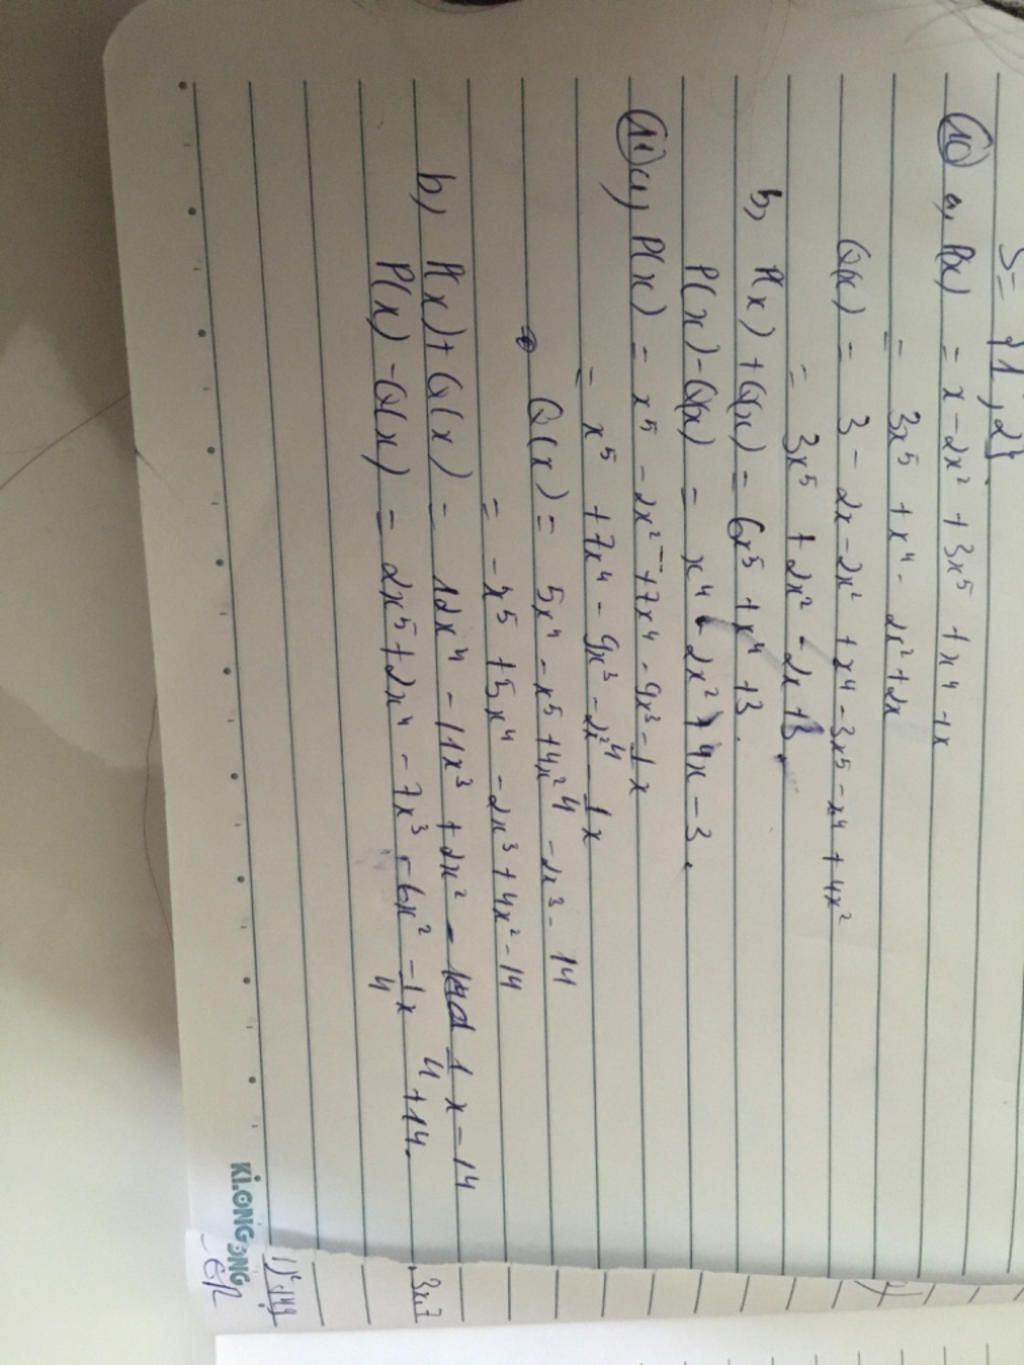 S = {1, 2}
10 a, P(x) = x - 2x² + 3x⁵ + x⁴ + x
= 3x⁵ + x⁴ - 2x² + 2x
Q(x) = 3 - 2x - 2x² + x⁴ - 3x⁵ - x⁴ + 4x²
= 3x⁵ + 2x² - 2x + 3.
b, P(x) + Q(x) = 6x⁵ + x⁴ + 3.
P(x) - Q(x) = x⁴ - 2x² + 4x - 3.
11 a, P(x) = x⁵ - 2x² + 7x⁴ - 9x³ - 1/4 x
= x⁵ + 7x⁴ - 9x³ - 2x² - 1/4 x
Q(x) = 5x⁴ - x⁵ + 4x² - 2x³ - 14
= -x⁵ + 5x⁴ - 2x³ + 4x² - 14
b, P(x) + Q(x) = 12x⁴ - 11x³ + 2x² - 1/4 x - 14
P(x) - Q(x) = 2x⁵ + 2x⁴ - 7x³ - 6x² - 1/4 x + 14.
KLONG